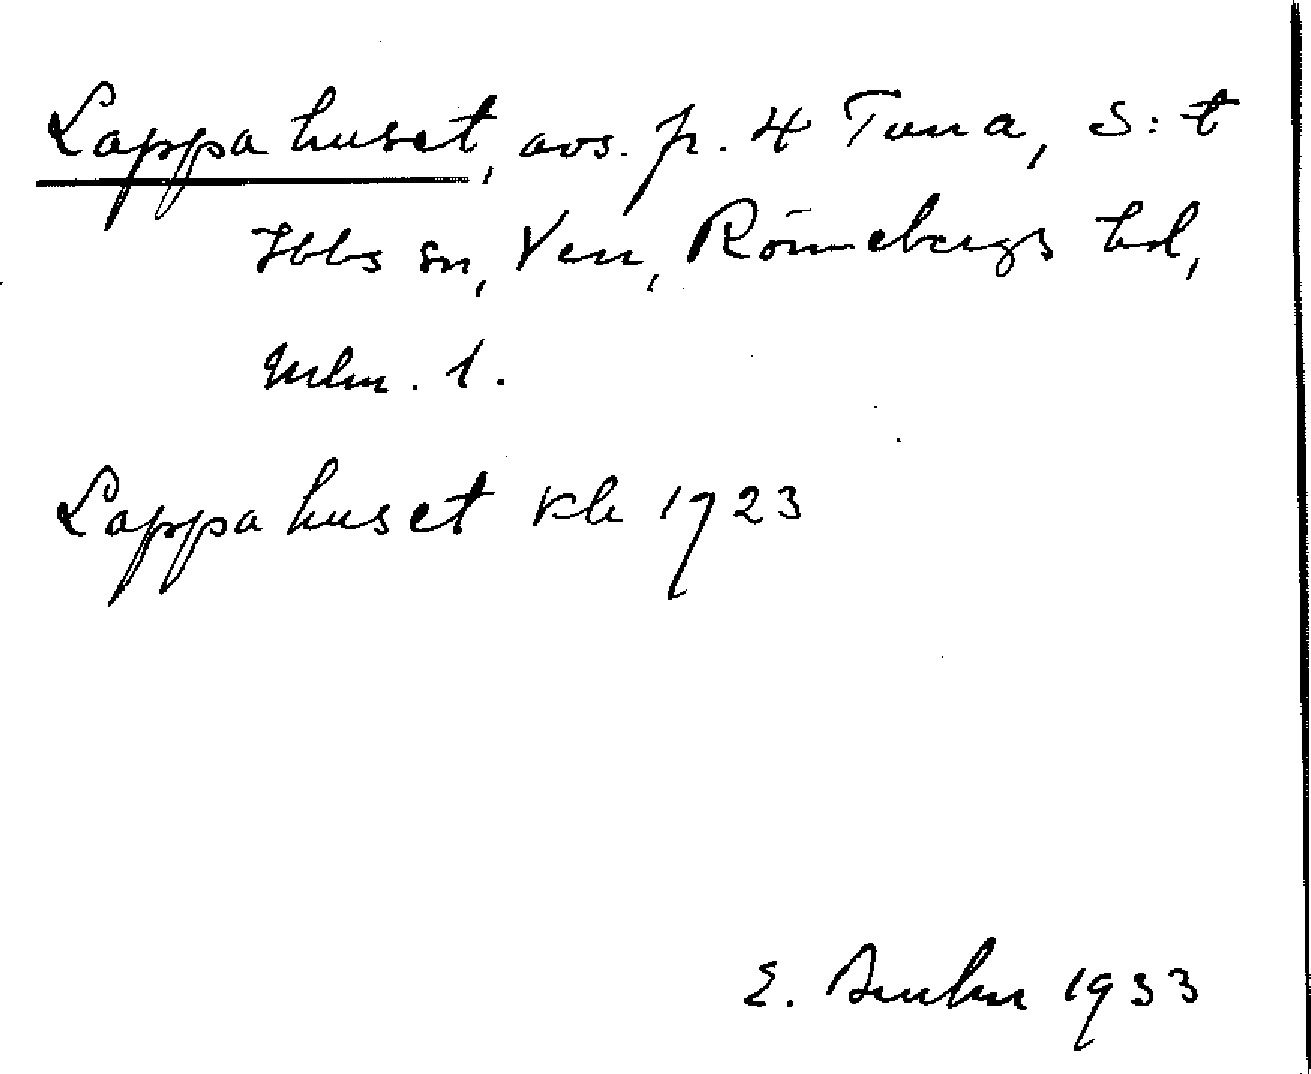 Lappahuset, avs. p. 4 Tuna, S:t
Ibbs sn, Ven, Rönnebergs hd,
Mlm. l.
Lappahuset kb 1723
E. 1933